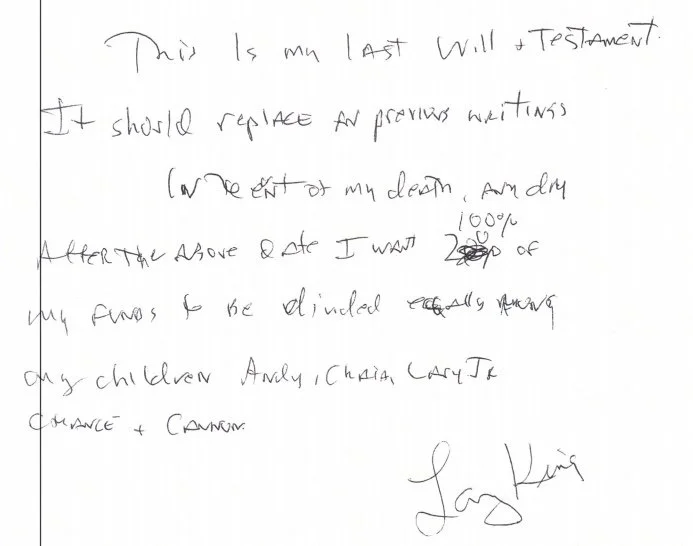 This Is my last Will + Testament.
It should replace all previous writings
In the event of my death, any day
After the Above date I want 100%
of
my funds to be divided equally among
my children Andy, Chaia, Larry Jr
Chance + Cannon
Larry King